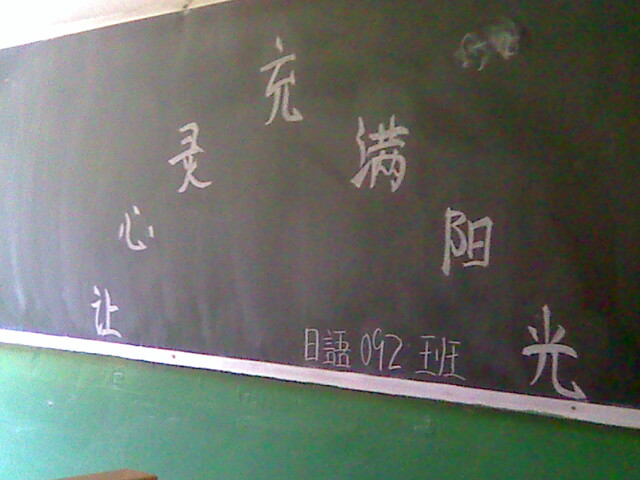 让心灵充满阳光
日語092班